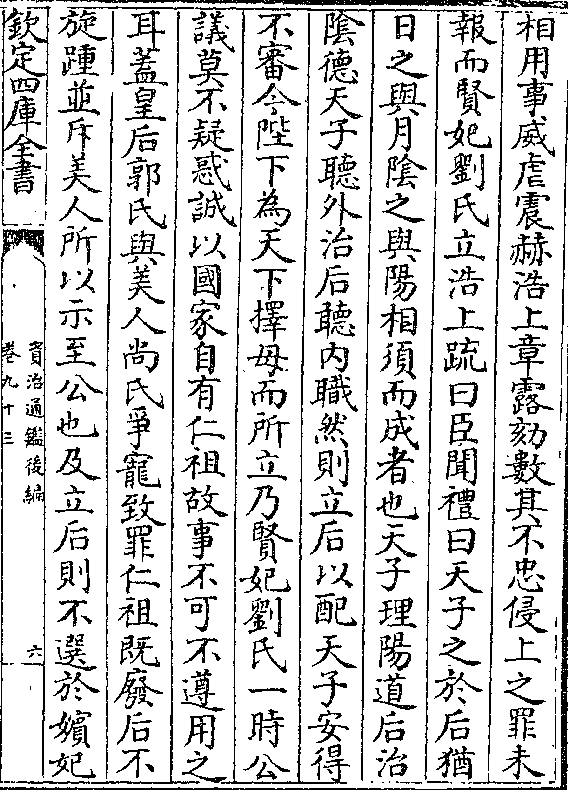 相用事威虐震赫浩上章露劾數其不忠侵上之罪未
報而賢妃劉氏立浩上疏曰臣聞禮曰天子之於后猶
日之與月陰之與陽相須而成者也天子理陽道后治
陰德天子聽外治后聽内職然則立后以配天子安得
不審今陛下為天下擇母而所立乃賢妃劉氏一時公
議莫不疑惑誠以國家自有仁祖故事不可不遵用之
耳蓋皇后郭氏與美人尚氏爭寵致罪仁祖既廢后不
旋踵並斥美人所以示至公也及立后則不選於嬪妃
欽定四庫全書
資治通鑑後編
卷九十三
六